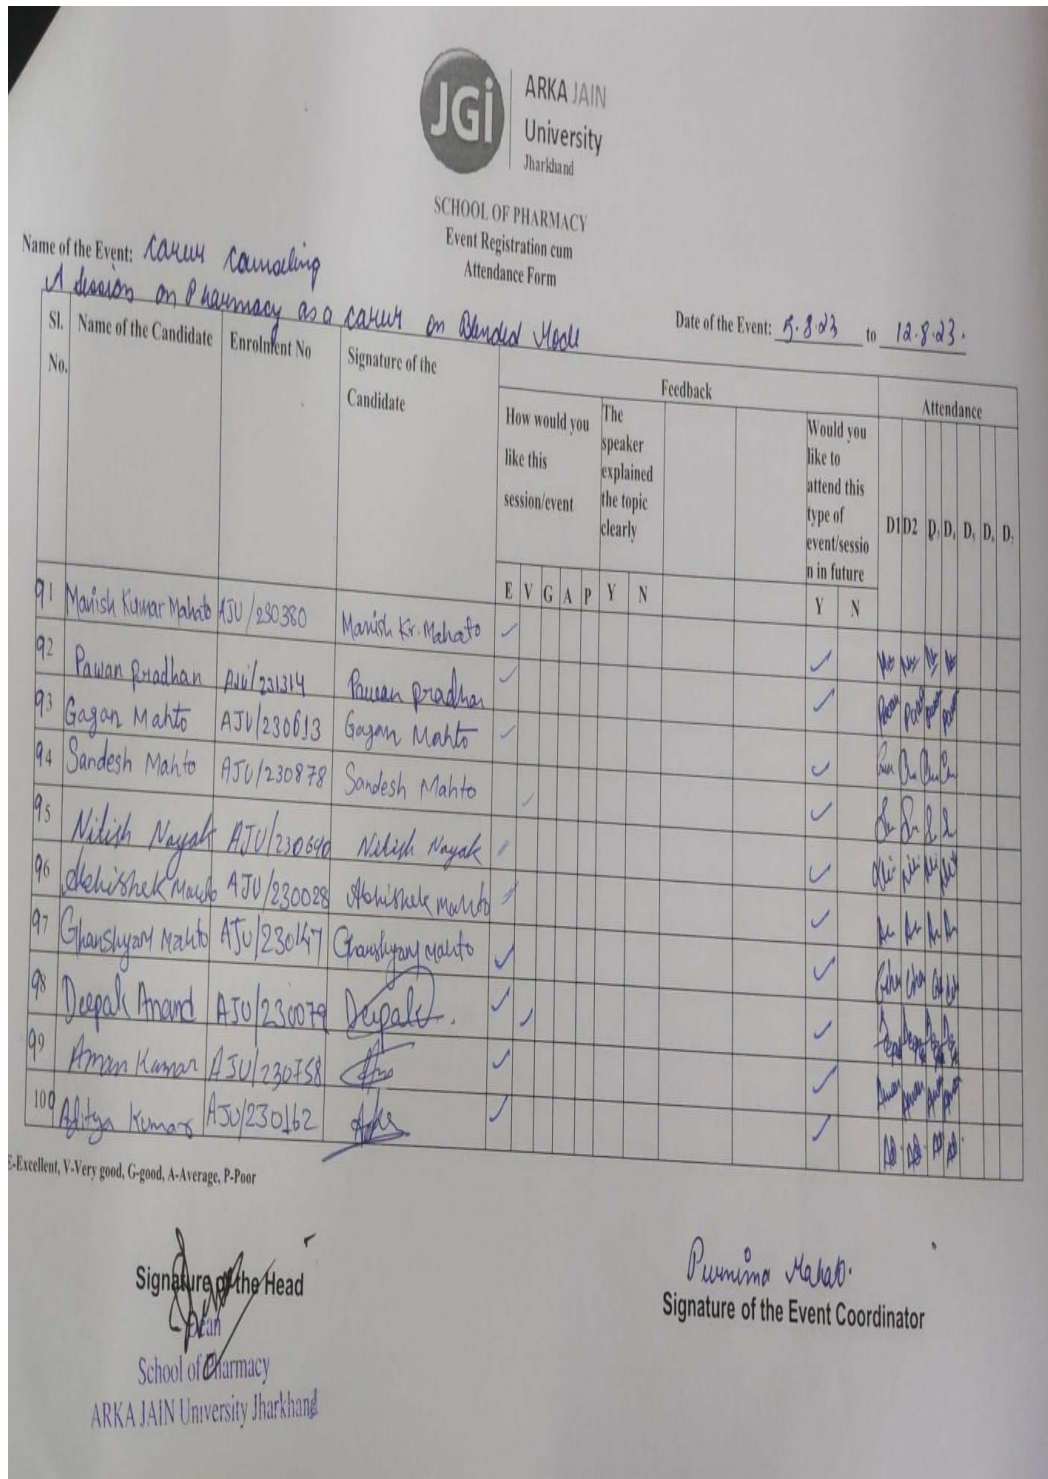 JGi
ARKA JAIN
University
Jharkhand
SCHOOL OF PHARMACY
Event Registration cum
Attendance Form
Name of the Event: Career Counseling
A Session on Pharmacy as a career on Blended Mode
Date of the Event: 5.8.23 to 12.8.23.
Sl. No. Name of the Candidate Enrolment No Signature of the Candidate Feedback Attendance
How would you like this session/event The speaker explained the topic clearly Would you like to attend this type of event/sessio n in future D1 D2 D3 D4 D5 D6 D7
E V G A P Y N Y N
91 Manish Kumar Mahato AJU/230380 Manish Kr. Mahato
92 Pawan pradhan AJU/231314 Pawan pradhan
93 Gagan Mahto AJU/230613 Gagan Mahto
94 Sandesh Mahto AJU/230878 Sandesh Mahto
95 Nitish Nayak AJU/230640 Nitish Nayak
96 Abhishek Mahto AJU/230028 Abhishek mahto
97 Ghanshyam Mahto AJU/230147 Ghanshyam Mahto
98 Deepak Anand AJU/230079 Deepak.
99 Aman Kumar AJU/230758
100 Aditya Kumar AJU/230162
E-Excellent, V-Very good, G-good, A-Average, P-Poor
Signature of the Head
Dean
School of Pharmacy
ARKA JAIN University Jharkhand
Purnima Mahato.
Signature of the Event Coordinator